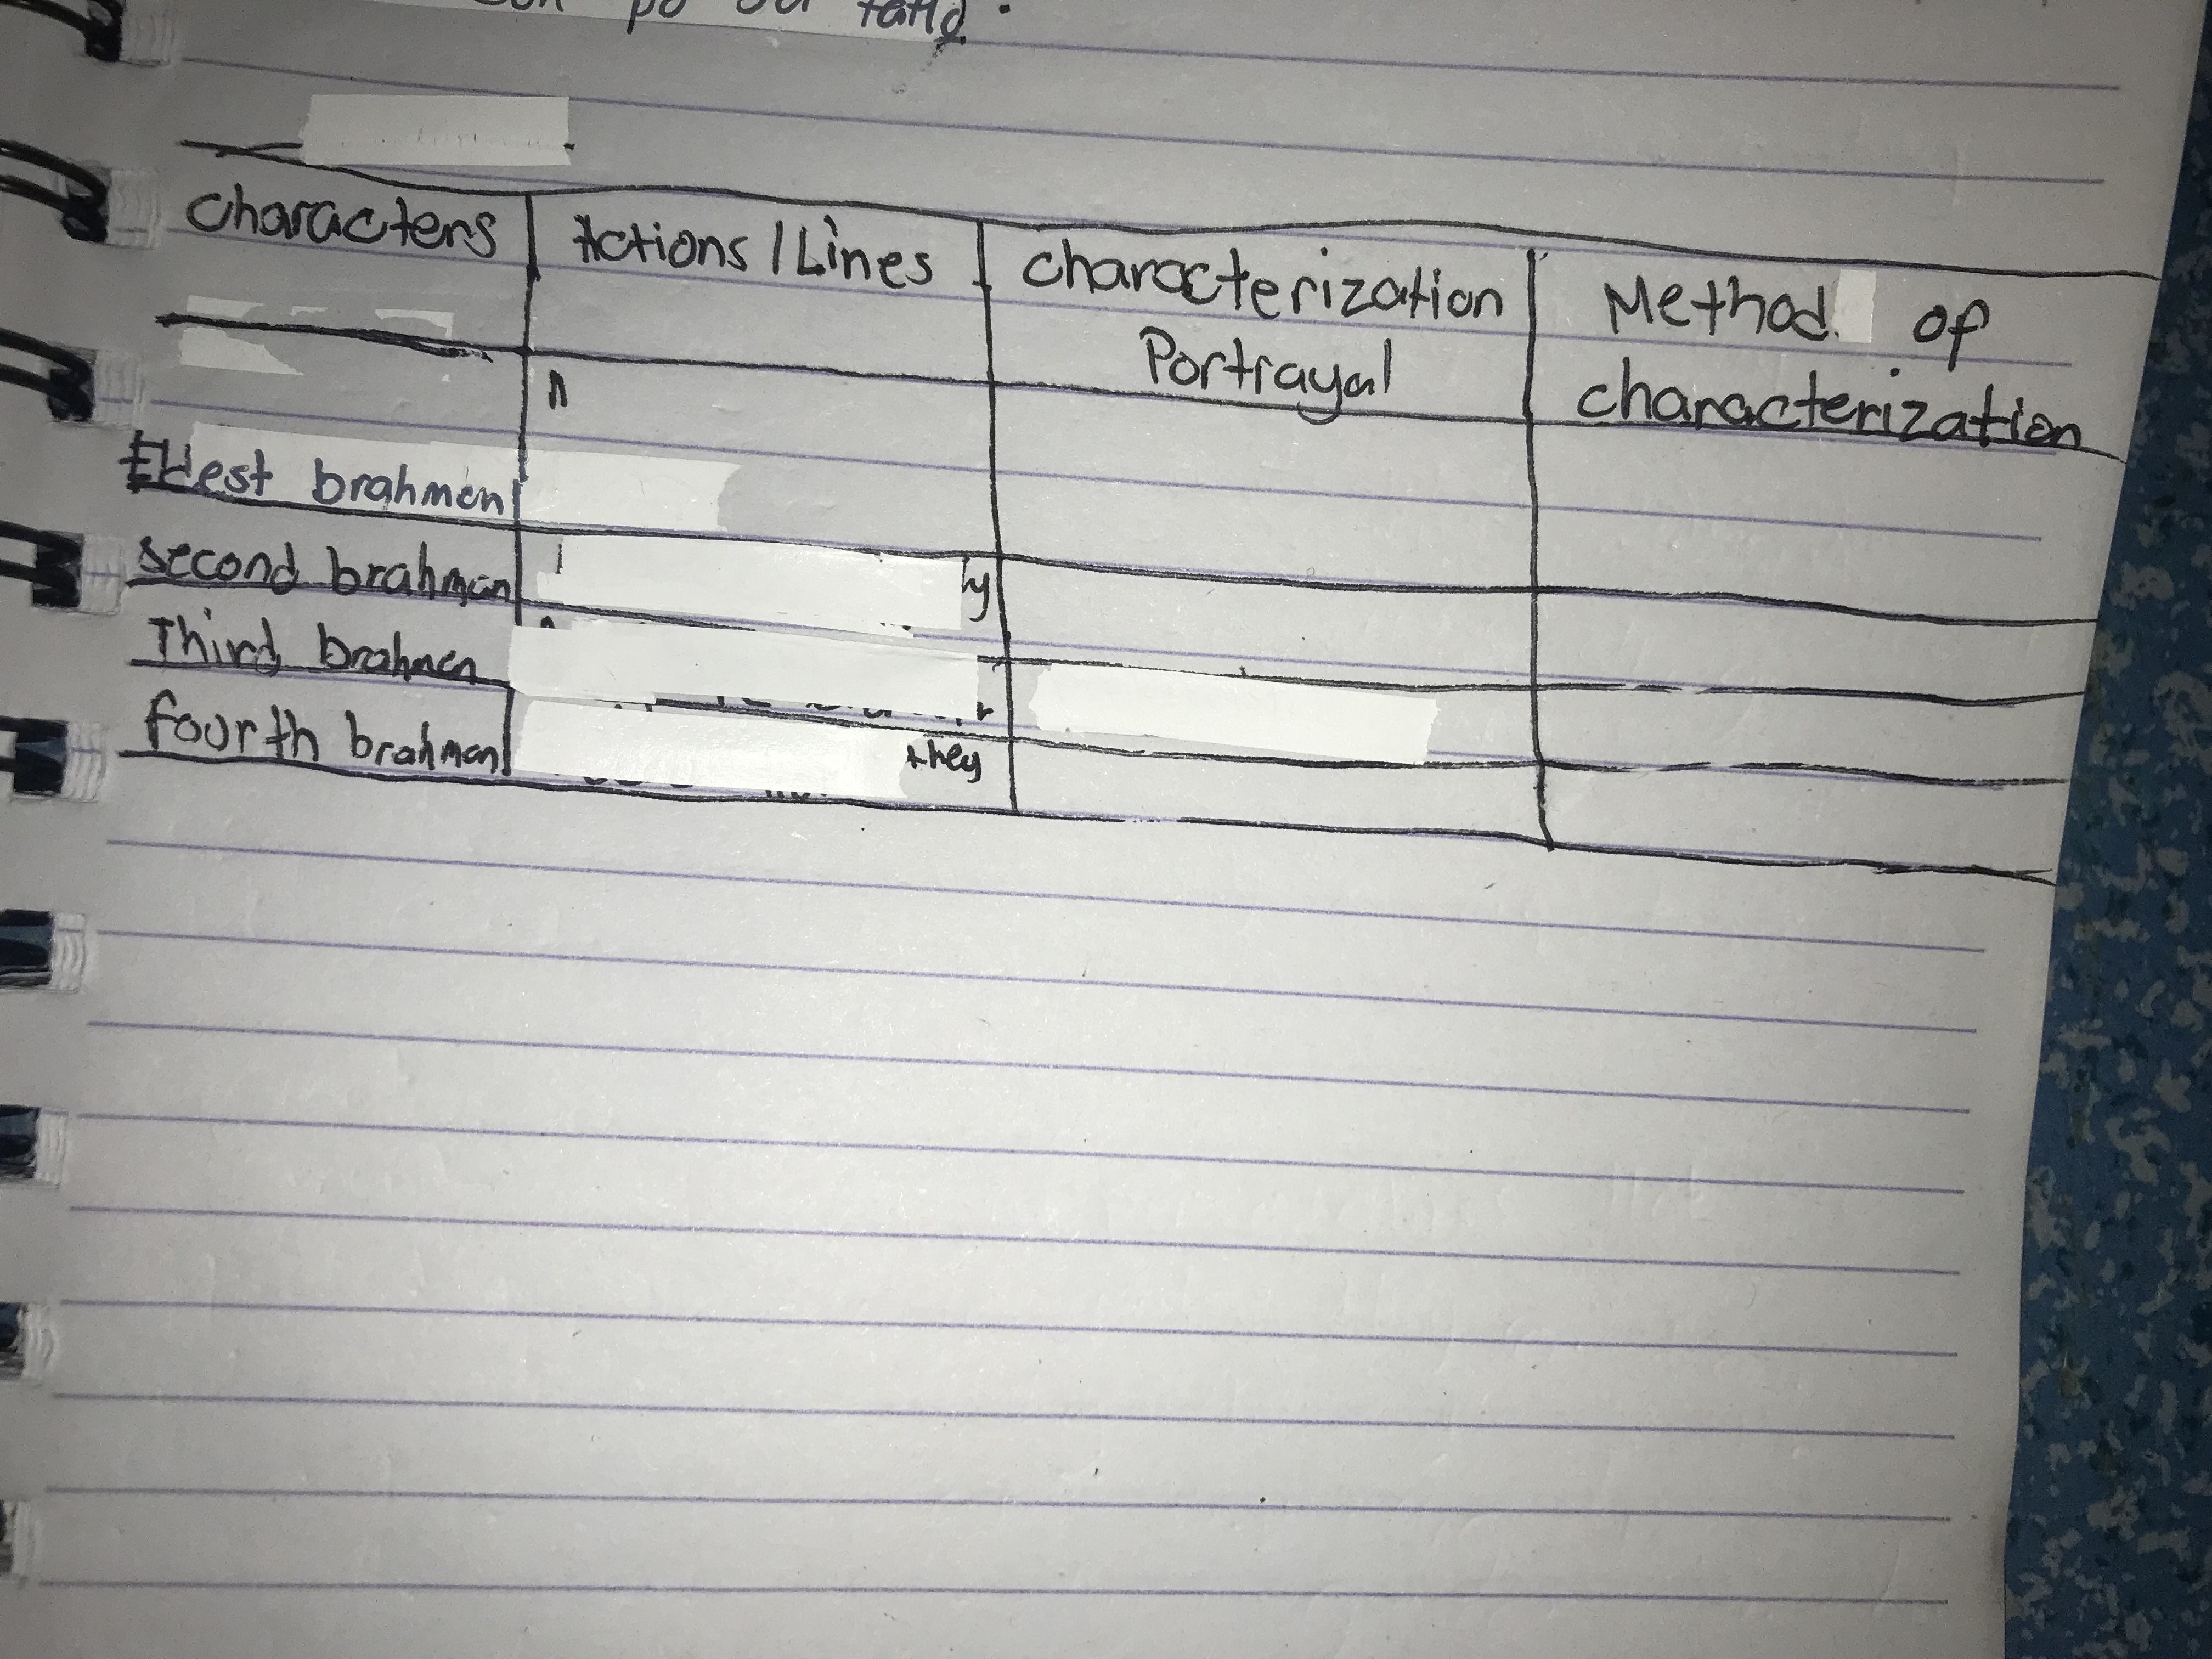 po
characters Actions / Lines characterization Method of
Portrayal characterization
Eldest brahmen
second brahman
Third brahmen
fourth brahman they